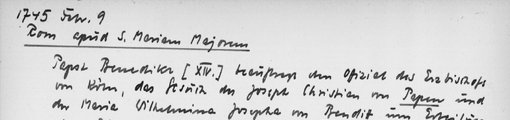 1745 Febr. 9
Rom apud S. Mariam Majorem
Papst Benedikt [XIV.] beauftragt den Offizial des Erzbischofs
von Köln, das Gesuch des Joseph Christian von Papen und
der Maria Wilhelmina Josepha von Bendit um